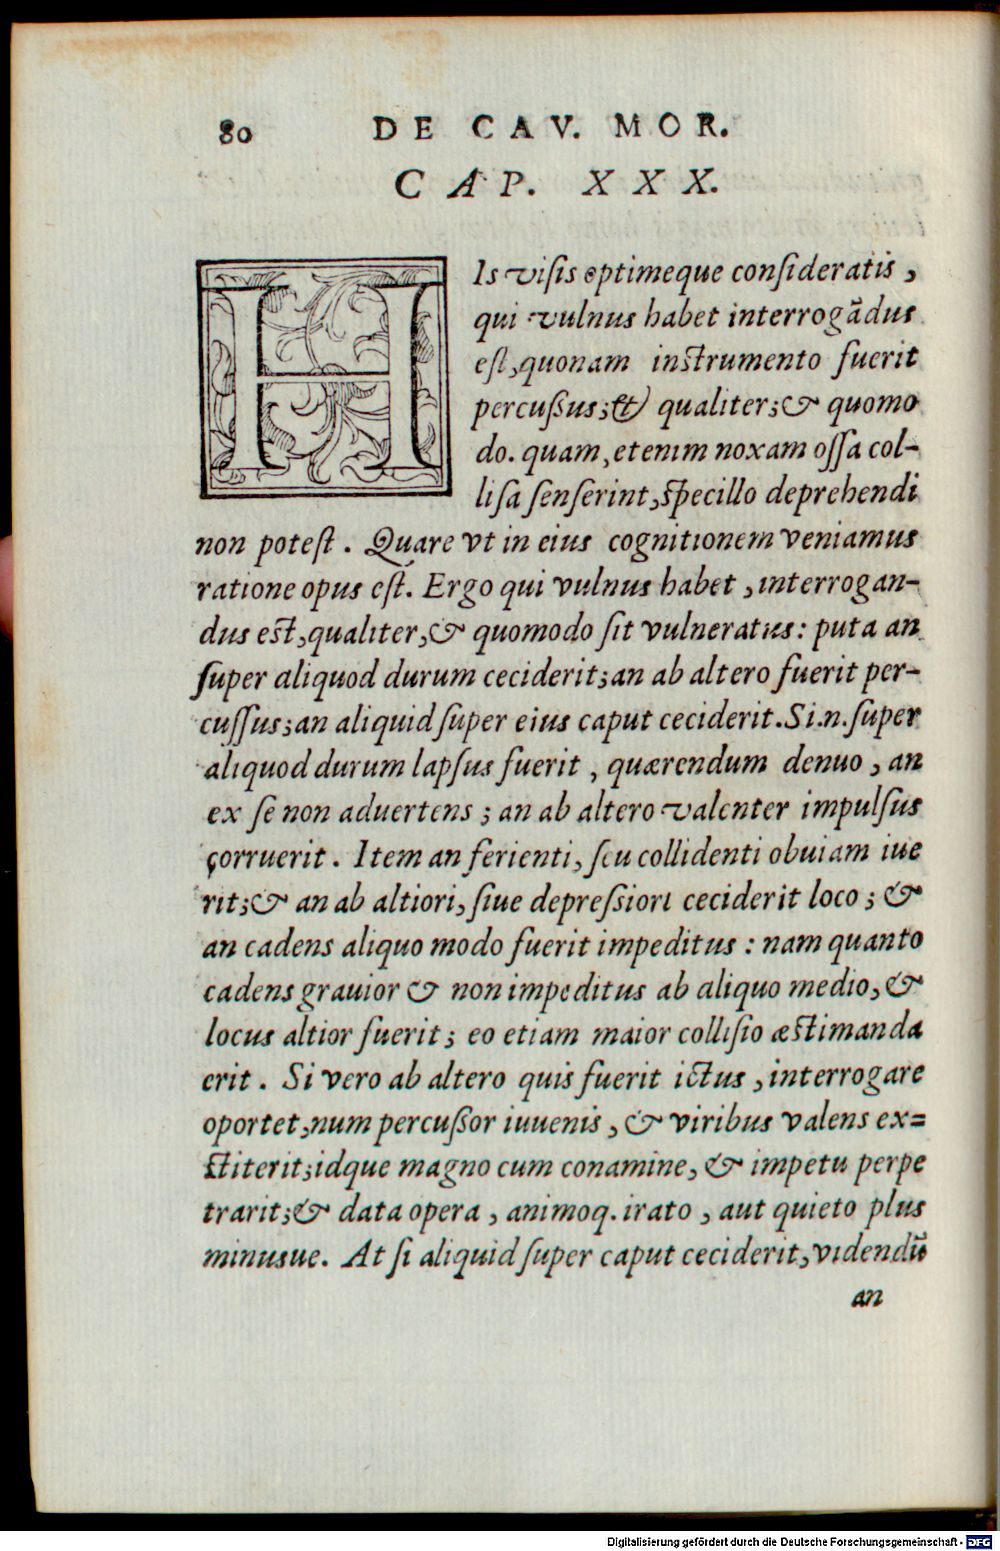 80 DE CAV. MOR.
CAP. XXX.
HIs visis optimeque consideratis,
qui vulnus habet interrogãdus
est, quonam instrumento fuerit
percußus; & qualiter; & quomo
do. quam, etenim noxam ossa col-
lisa senserint, specillo deprehendi
non potest. Quare vt in eius cognitionem veniamus
ratione opus est. Ergo qui vulnus habet, interrogan-
dus est, qualiter, & quomodo sit vulneratus: puta an
super aliquod durum ceciderit; an ab altero fuerit per-
cussus; an aliquid super eius caput ceciderit. Si .n. super
aliquod durum lapsus fuerit, quærendum denuo, an
ex se non aduertens; an ab altero valenter impulsus
corruerit. Item an ferienti, seu collidenti obuiam iue
rit; & an ab altiori, siue depreßiori ceciderit loco; &
an cadens aliquo modo fuerit impeditus: nam quanto
cadens grauior & non impeditus ab aliquo medio, &
locus altior fuerit; eo etiam maior collisio æstimanda
erit. Si vero ab altero quis fuerit ictus, interrogare
oportet, num percußor iuuenis, & viribus valens ex=
stiterit; idque magno cum conamine, & impetu perpe
trarit; & data opera, animoq. irato, aut quieto plus
minusue. At si aliquid super caput ceciderit, videndũ
an
Digitalisierung gefördert durch die Deutsche Forschungsgemeinschaft - DFG